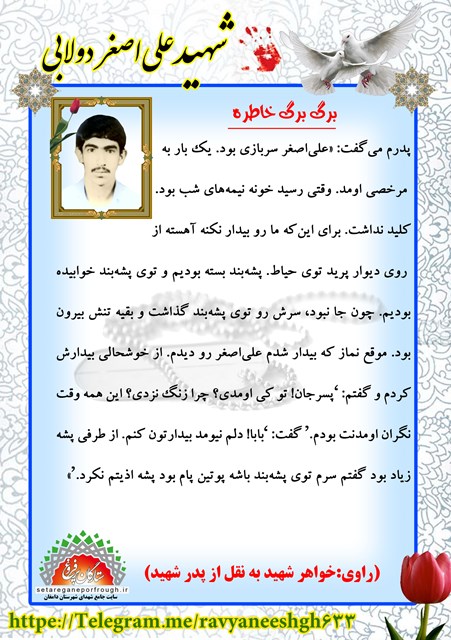 شهید علی اصغر دولابی
برگ برگ خاطره
پدرم می‌گفت: «علی‌اصغر سربازی بود. یک بار به
مرخصی اومد. وقتی رسید خونه نیمه‌های شب بود.
کلید نداشت. برای این‌که ما رو بیدار نکنه آهسته از
روی دیوار پرید توی حیاط. پشه‌بند بسته بودیم و توی پشه‌بند خوابیده
بودیم. چون جا نبود، سرش رو توی پشه‌بند گذاشت و بقیه تنش بیرون
بود. موقع نماز که بیدار شدم علی‌اصغر رو دیدم. از خوشحالی بیدارش
کردم و گفتم: ‘پسرجان! تو کی اومدی؟ چرا زنگ نزدی؟ این همه وقت
نگران اومدنت بودم.’ گفت: ‘بابا! دلم نیومد بیدارتون کنم. از طرفی پشه
زیاد بود گفتم سرم توی پشه‌بند باشه پوتین پام بود پشه اذیتم نکرد.’»
(راوی:خواهر شهید به نقل از پدر شهید)
ستارگان پرفروغ
setareganeporfrough.ir
سایت جامع شهدای شهرستان دامغان
https://Telegram.me/ravyaneeshgh633